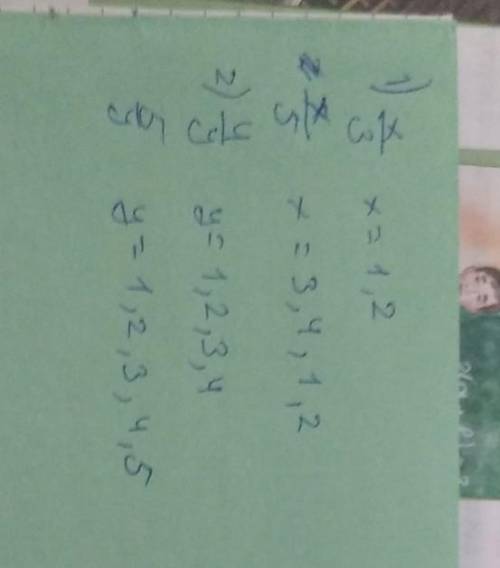 1) x/3 x = 1, 2
x/5 x = 3, 4, 1, 2
2) 4/y y = 1, 2, 3, 4
5/y y = 1, 2, 3, 4, 5